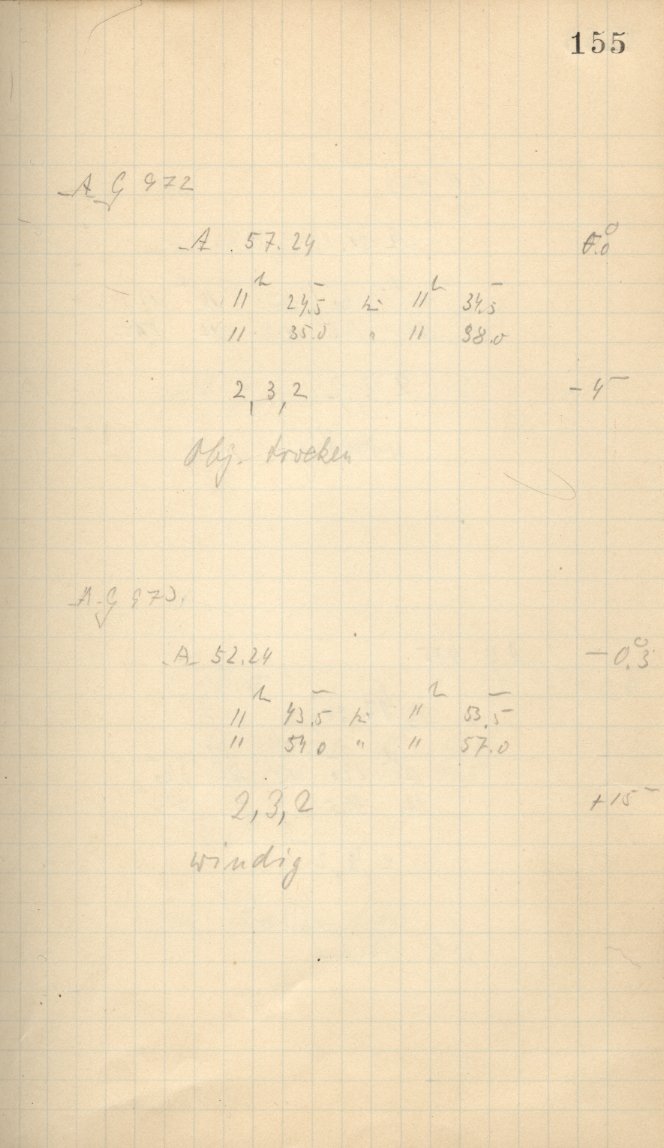 155
A G 972
A 57.24 0.0°
11ʰ 24.5 bis 11ʰ 34.5
11 35.0 " 11 38.0
2,3,2 - 4
Obj. trocken
A G 973.
A 52.24 - 0.3°
11ʰ 43.5 bis 11ʰ 53.5
11 54.0 " 11 57.0
2,3,2 + 15
windig